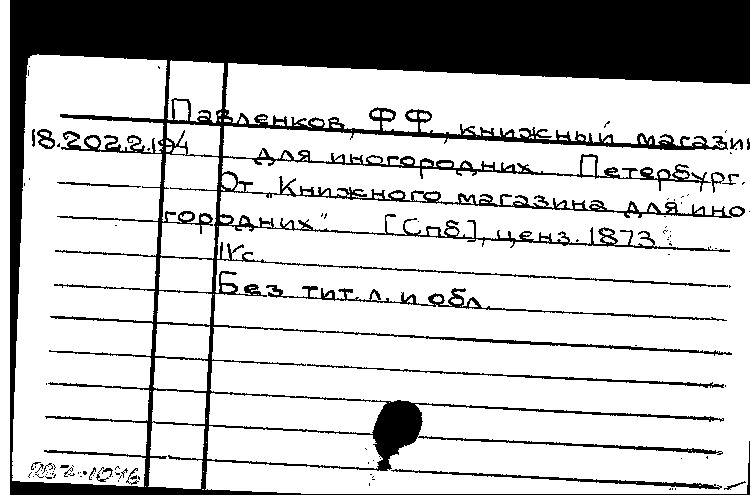 Павленков, Ф.Ф., книжный магазин
18.202.2.194 для иногородних. Петербург.
От „Книжного магазина для ино-
городних". [Спб.], ценз. 1873
IVс.
Без тит. л. и обл.